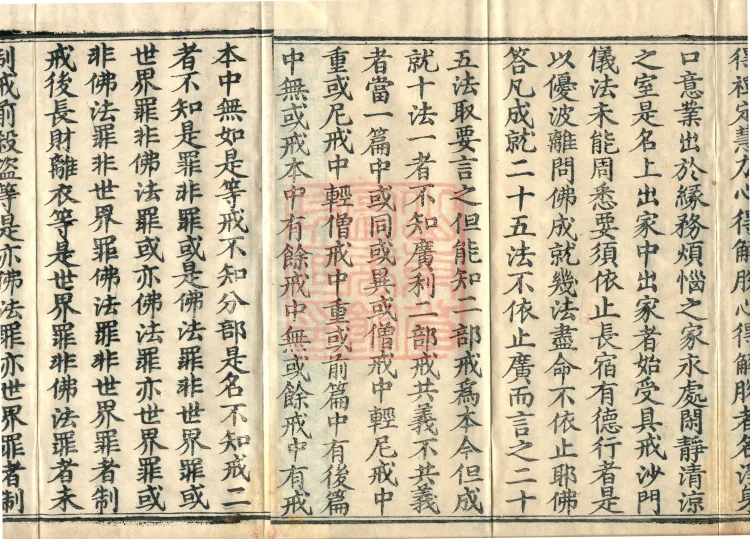 得禪定慧力心得解脫心得解脫者名淨身
口意業出於緣務煩惱之家永處閑靜清涼
之室是名上出家中出家者始受具戒沙門
儀法未能周悉要須依止長宿有德行者是
以優波離問佛成就幾法盡命不依止耶佛
答凡成就二十五法不依止廣而言之二十
五法取要言之但能知二部戒為本今但成
就十法一者不知廣利二部戒共義不共義
者當一篇中或同或異或僧戒中輕尼戒中
重或尼戒中輕僧戒中重或前篇中有後篇
中無或戒本中有餘戒中無或餘戒中有戒
本中無如是等戒不知分部是名不知戒二
者不知是罪非罪或是佛法罪非世界罪或
世界罪非佛法罪或亦佛法罪亦世界罪或
非佛法罪非世界罪佛法罪非世界罪者制
戒後長財離衣等是世界罪非佛法罪者未
制戒前殺盜等是亦佛法罪亦世界罪者制